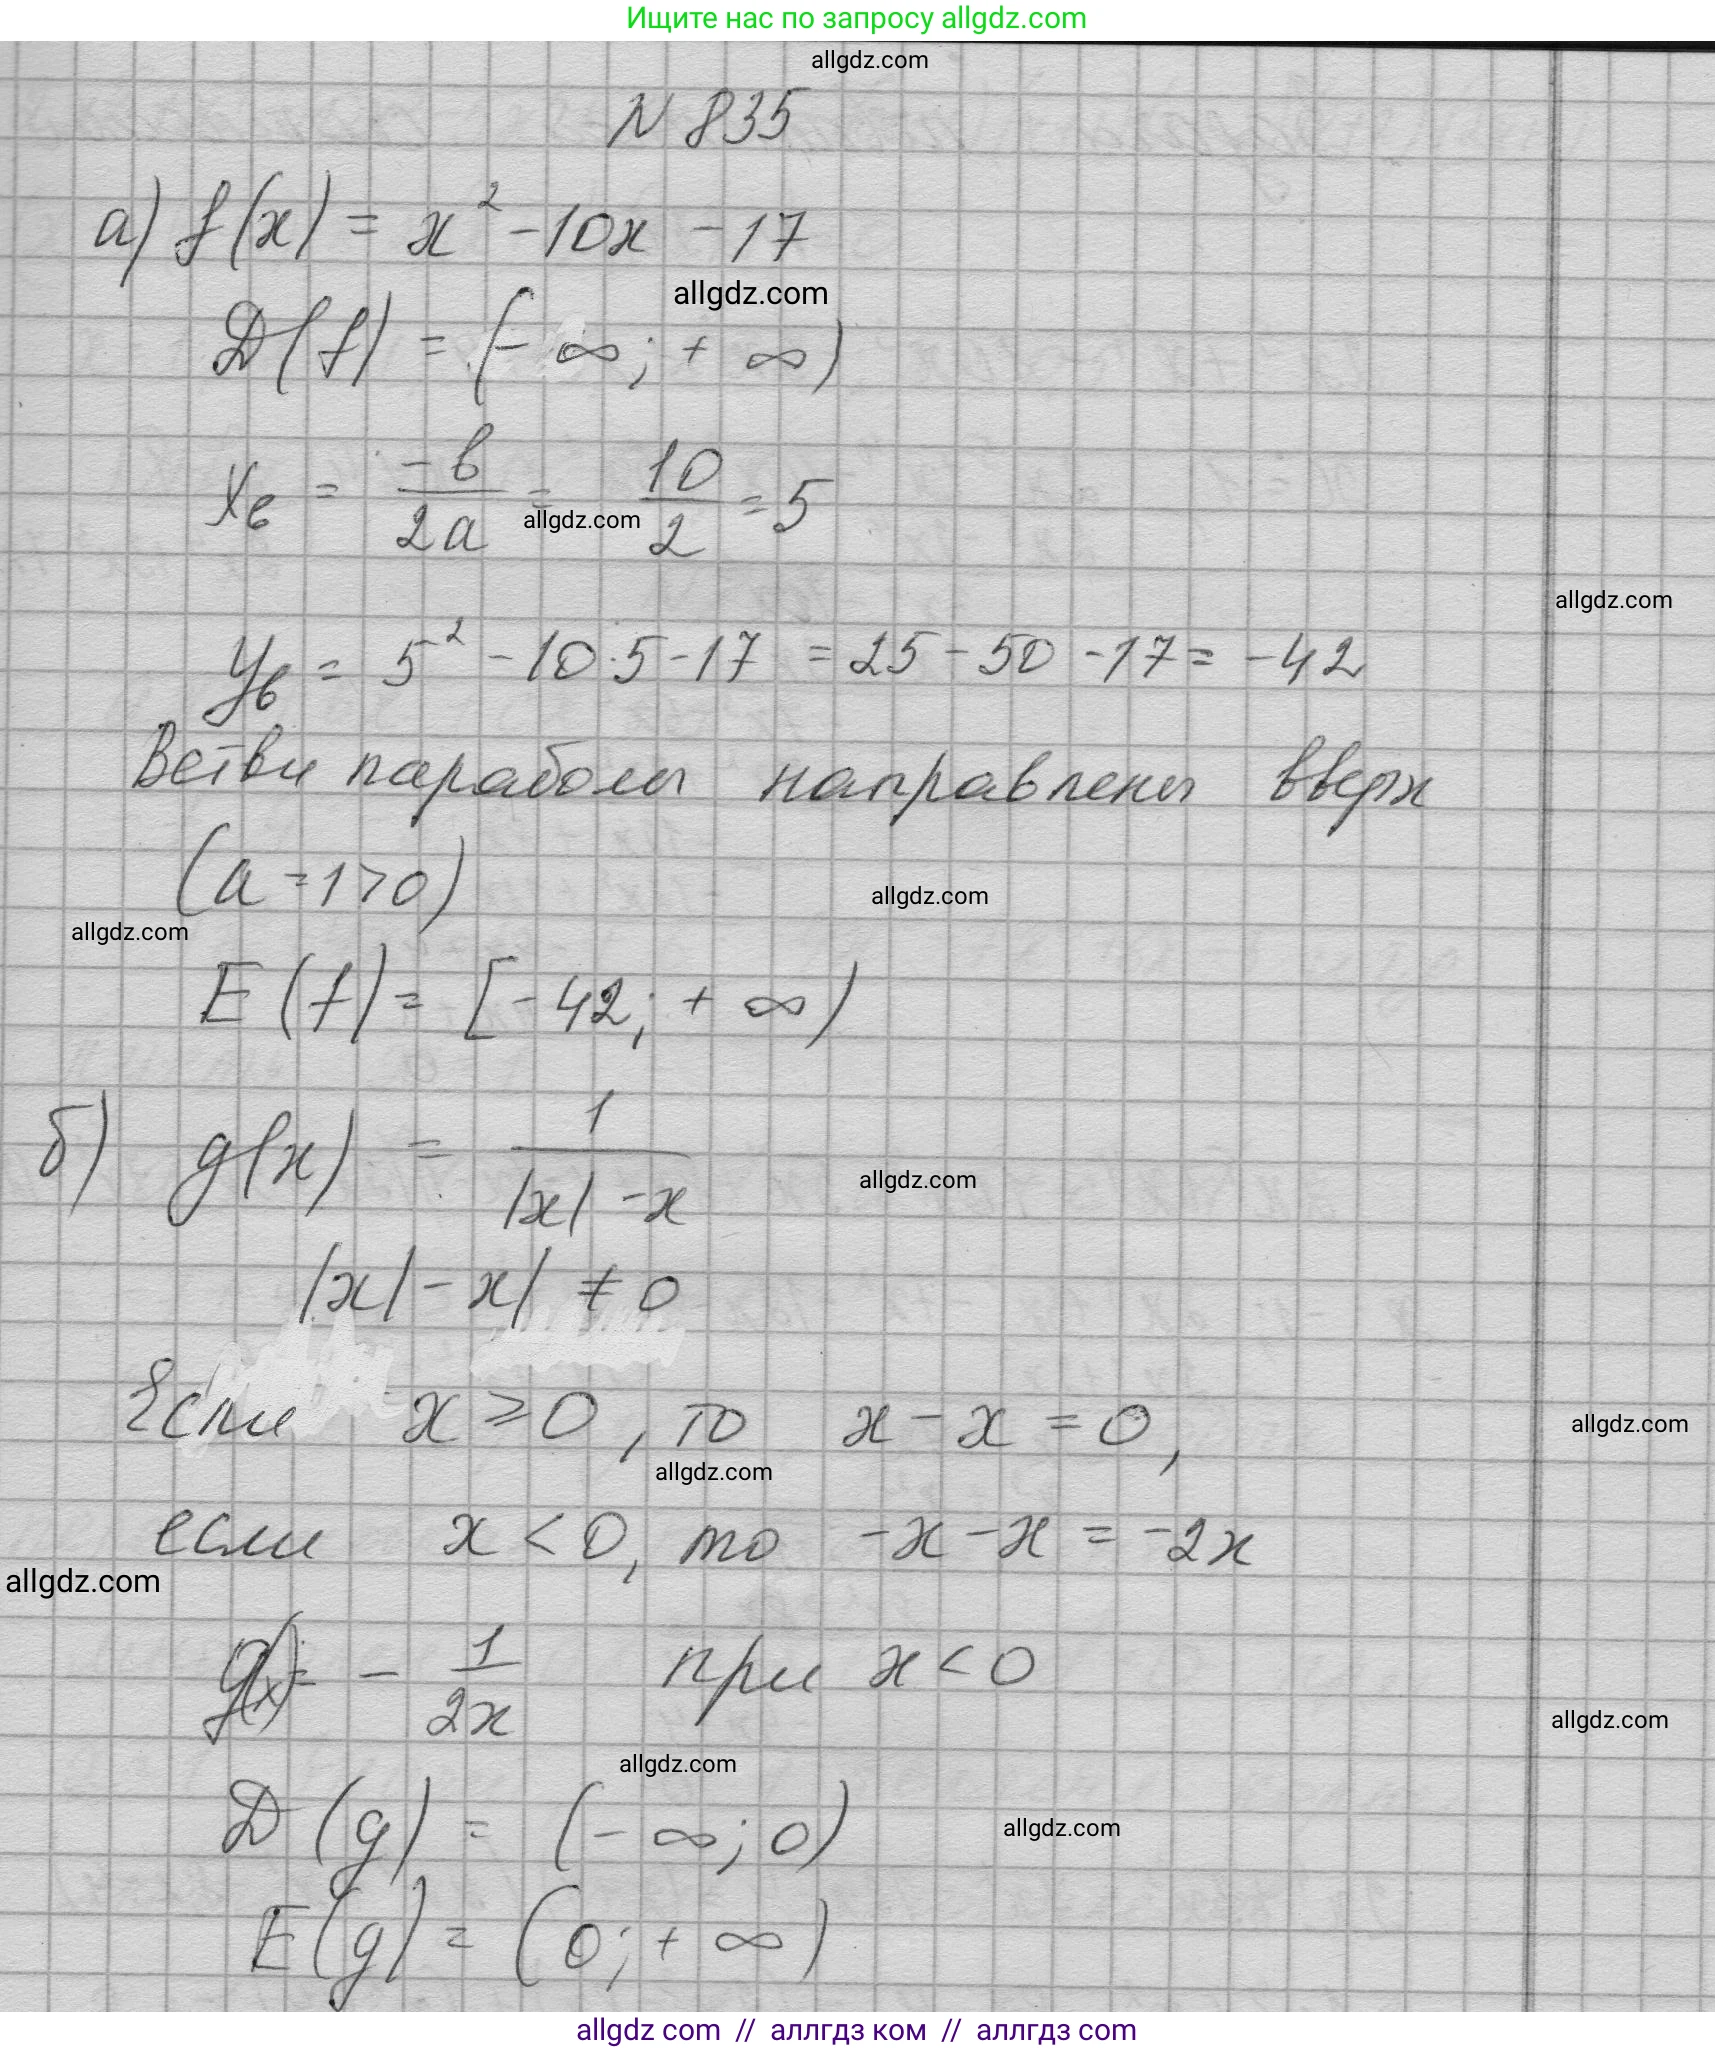 Ищите нас по запросу allgdz.com
allgdz.com
N 835
а) f(x) = x² - 10x - 17
allgdz.com
D(f) = (-∞; +∞)
xв = -в/2a = 10/2 = 5
allgdz.com
allgdz.com
yв = 5² - 10·5 - 17 = 25 - 50 - 17 = -42
Ветви параболы направлены вверх
(a = 1 > 0)
allgdz.com
allgdz.com
E(f) = [-42; +∞)
б) g(x) = 1/(|x| - x)
allgdz.com
|x| - x| ≠ 0
Если x ≥ 0, то x - x = 0,
allgdz.com
allgdz.com
если x < 0, то -x - x = -2x
allgdz.com
g(x) = - 1/2x при x < 0
allgdz.com
allgdz.com
D(g) = (-∞; 0)
allgdz.com
E(g) = (0; +∞)
allgdz com // аллгдз ком // аллгдз com